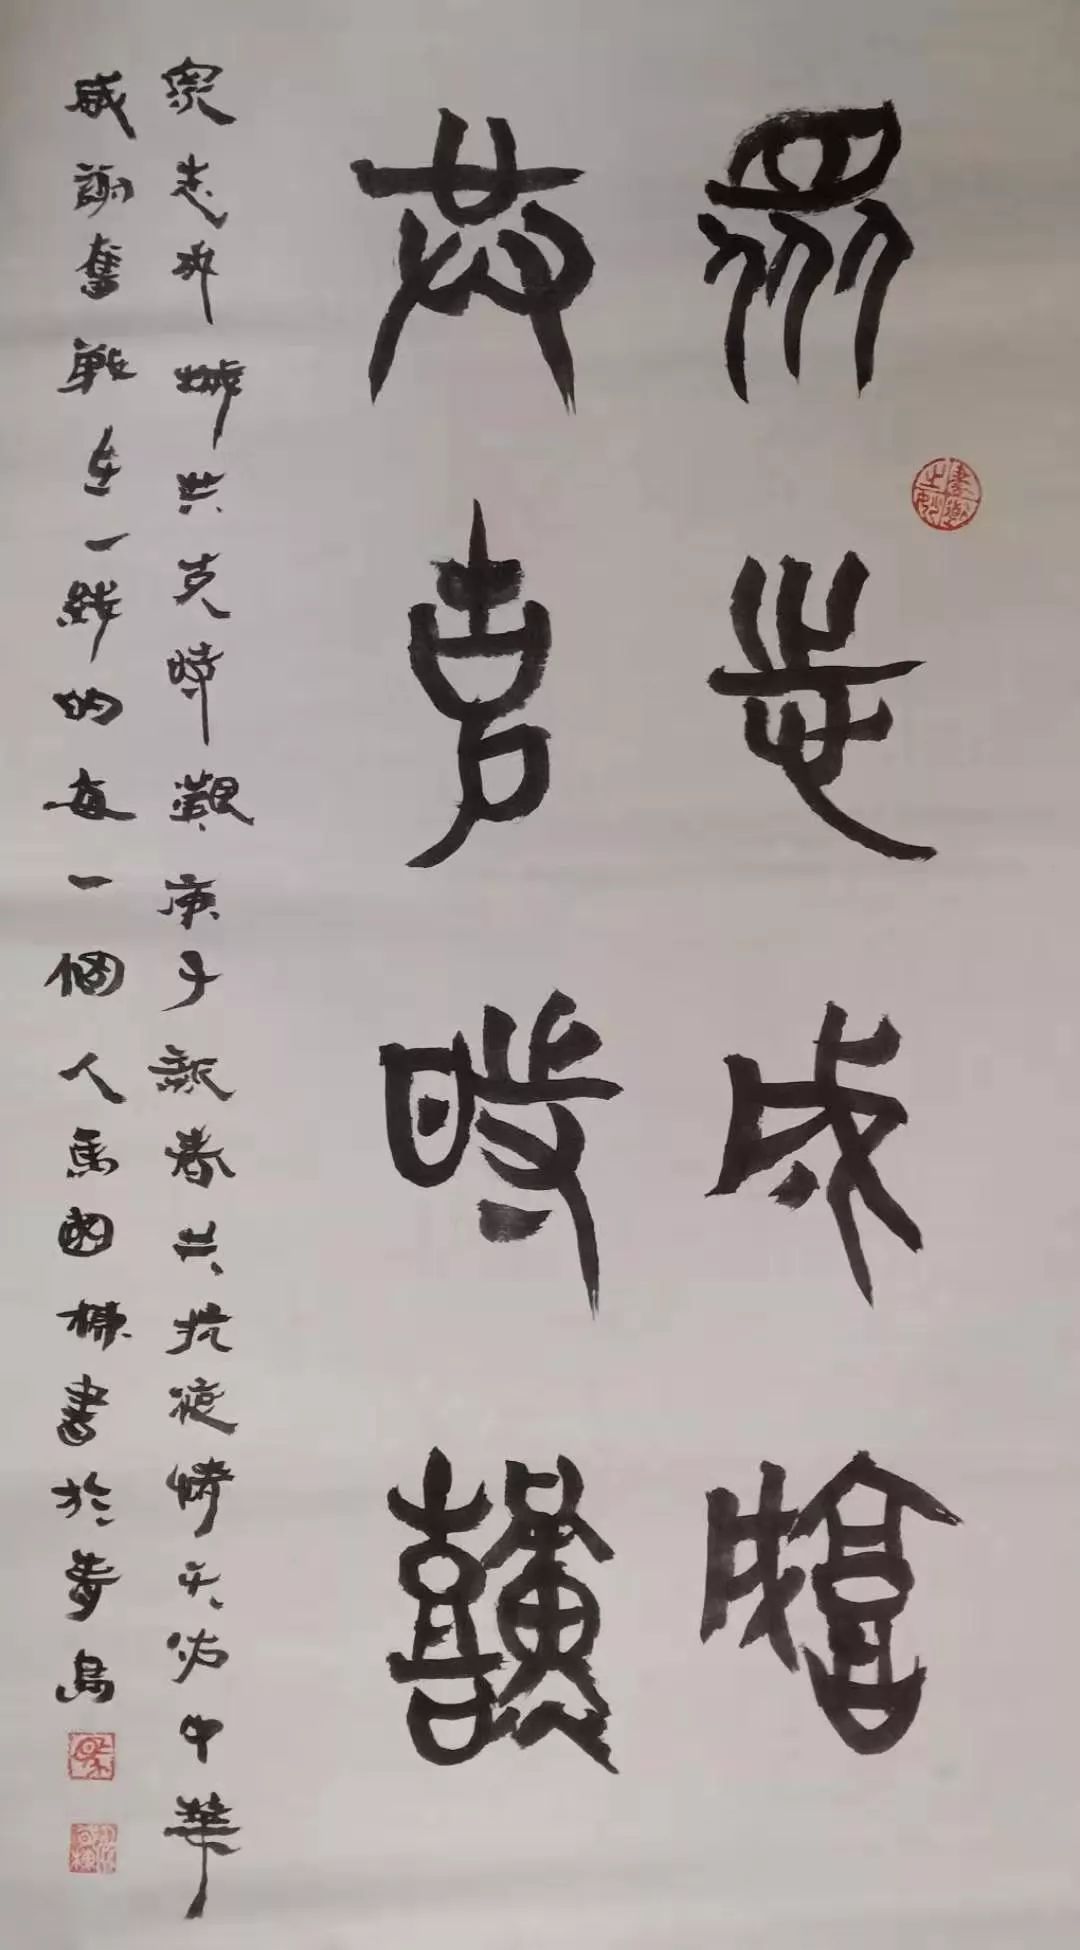 眾志成城
共克時艱
眾志成城共克時艱庚子新春共抗疫情天佑中華
感謝奮戰在一線的每一個人馬國樑書於青島